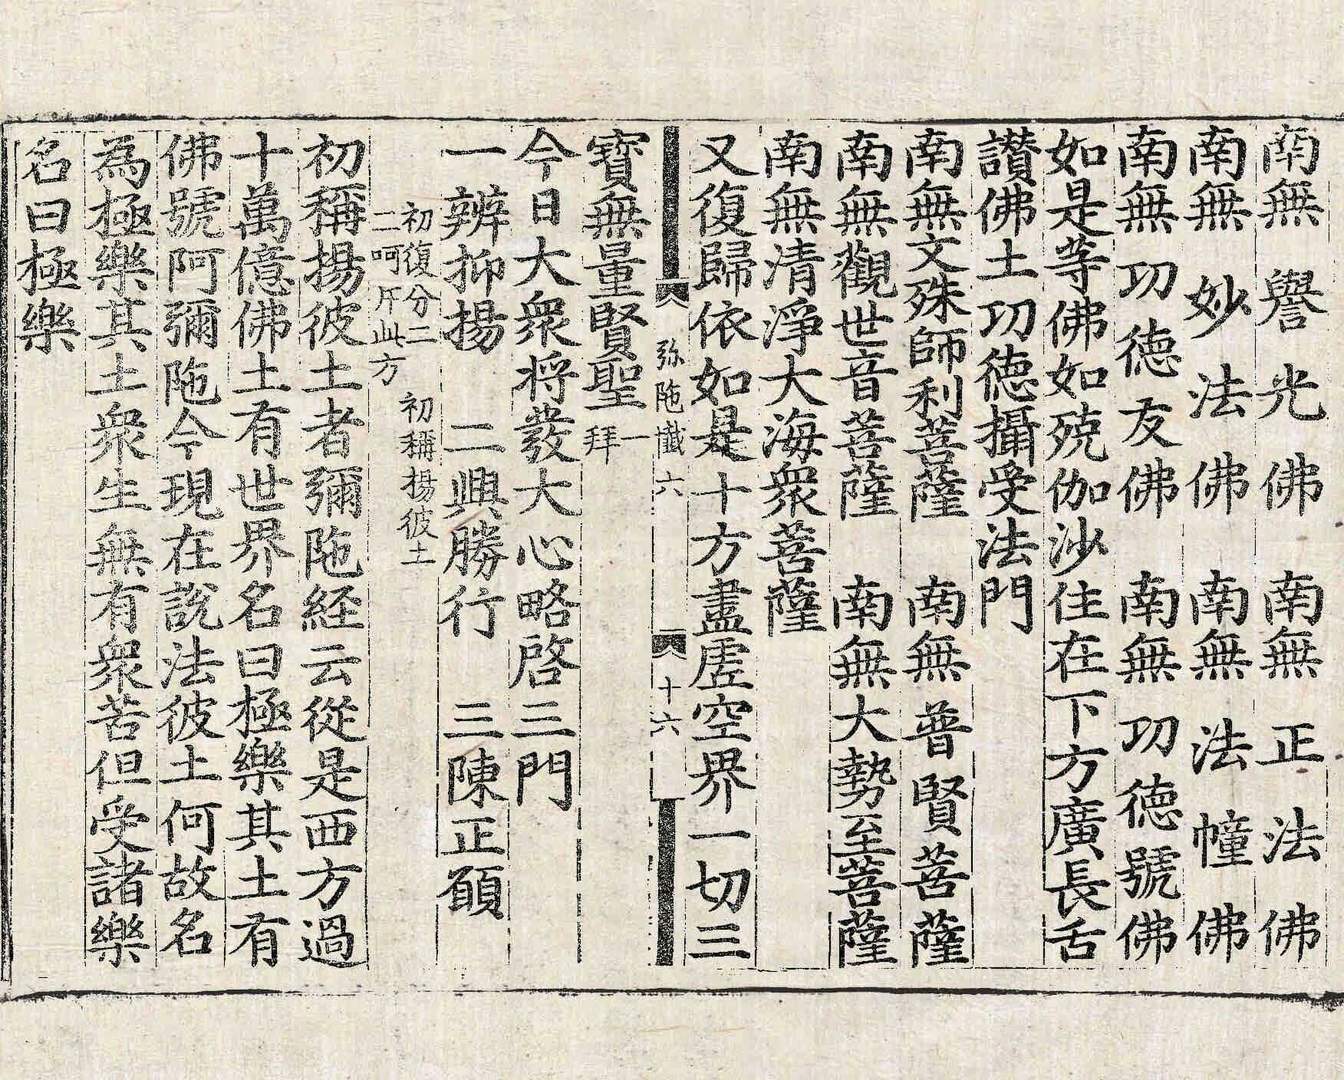 南無譽光佛　南無正法佛
南無妙法佛　南無法幢佛
南無功德友佛　南無功德號佛
如是等佛如殑伽沙住在下方廣長舌
讃佛土功德攝受法門
南無文殊師利菩薩　南無普賢菩薩
南無觀世音菩薩　南無大勢至菩薩
南無清淨大海衆菩薩
又復歸依如是十方盡虛空界一切三
弥陁懴六　十六
寶無量賢聖一拜
今日大衆将發大心略啓三門
一辨抑揚　二興勝行　三陳正願
初復分二　初稱揚彼土
二呵斥此方
初稱揚彼土者彌陁経云從是西方過
十萬億佛土有世界名曰極樂其土有
佛號阿彌陁今現在說法彼土何故名
為極樂其土衆生無有衆苦但受諸樂
名曰極樂